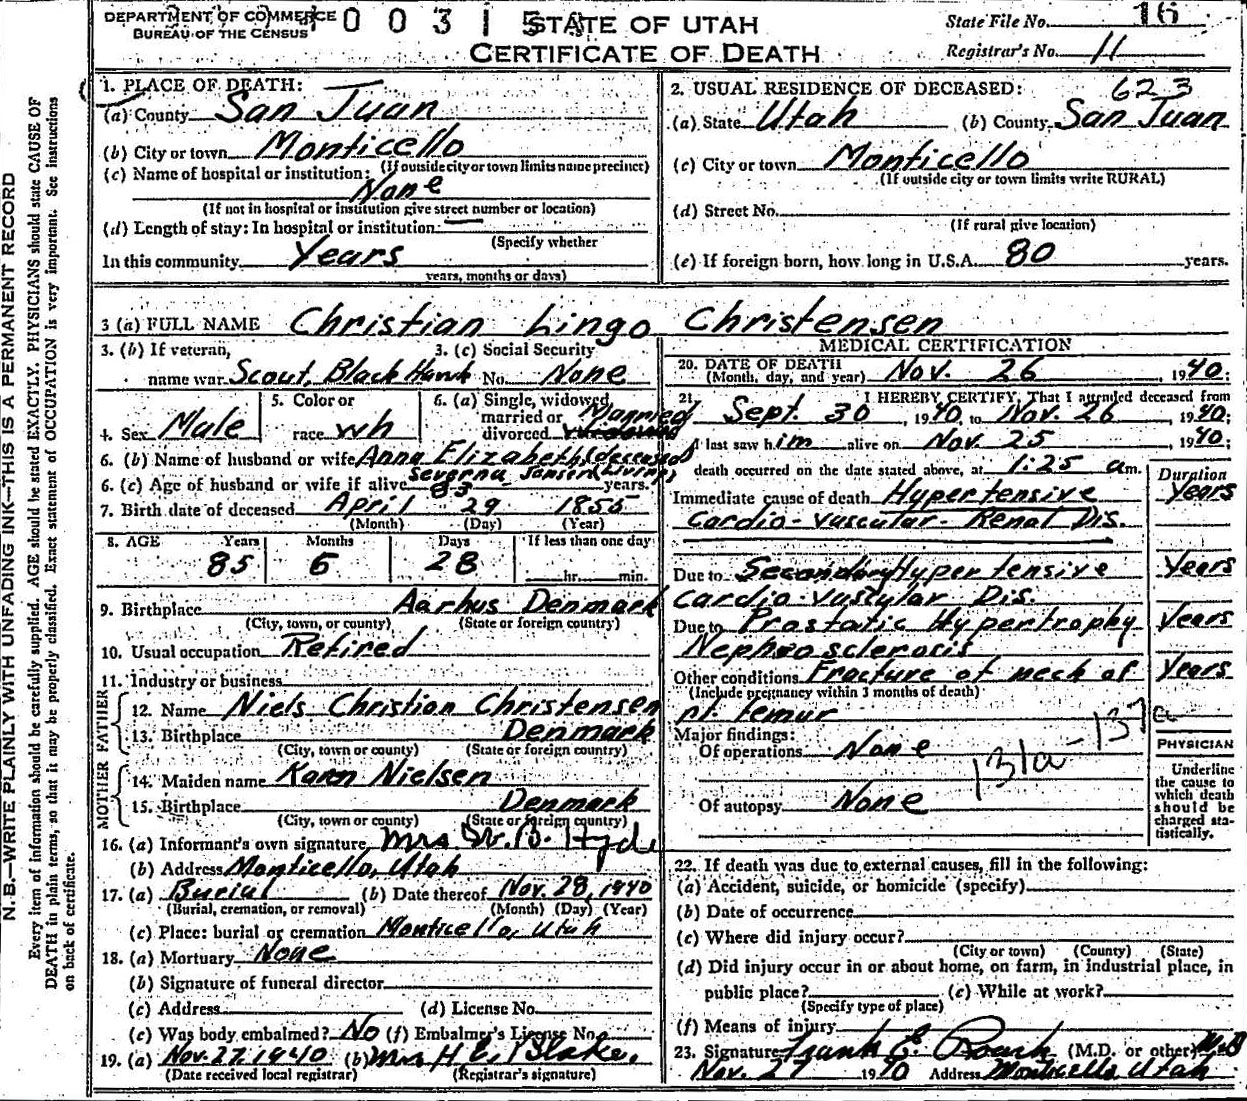 DEPARTMENT OF COMMERCE
BUREAU OF THE CENSUS
STATE OF UTAH
CERTIFICATE OF DEATH
State File No. 16
Registrar's No. 11
N.B.—WRITE PLAINLY WITH UNFADING INK—THIS IS A PERMANENT RECORD
Every item of information should be carefully supplied. AGE should be stated EXACTLY. PHYSICIANS should state CAUSE OF
DEATH in plain terms, so that it may be properly classified. Exact statement of OCCUPATION is very important. See instructions
on back of certificate.
1. PLACE OF DEATH:
(a) County San Juan
(b) City or town Monticello
(If outside city or town limits name precinct)
(c) Name of hospital or institution:
None
(If not in hospital or institution give street number or location)
(d) Length of stay: In hospital or institution
(Specify whether
In this community Years
years, months or days)
2. USUAL RESIDENCE OF DECEASED: 623
(a) State Utah (b) County San Juan
(c) City or town Monticello
(If outside city or town limits write RURAL)
(d) Street No.
(If rural give location)
(e) If foreign born, how long in U.S.A. 80 years.
3 (a) FULL NAME Christian Lingo Christensen
3. (b) If veteran, name war Scout, Black Hawk
3. (c) Social Security No. None
4. Sex Male
5. Color or race wh
6. (a) Single, widowed, married or divorced Married
6. (b) Name of husband or wife Anna Elizabeth (deceased)
Severna Jensen (Living)
6. (c) Age of husband or wife if alive 83 years.
7. Birth date of deceased April 29 1855
(Month) (Day) (Year)
8. AGE Years Months Days If less than one day
85 6 28 hr. min.
9. Birthplace Aarhus Denmark
(City, town, or county) (State or foreign country)
10. Usual occupation Retired
11. Industry or business
FATHER
12. Name Niels Christian Christensen
13. Birthplace Denmark
(City, town or county) (State or foreign country)
MOTHER
14. Maiden name Karen Nielsen
15. Birthplace Denmark
(City, town or county) (State or foreign country)
16. (a) Informant's own signature Mrs. W. B. Hyde
(b) Address Monticello, Utah
17. (a) Burial (b) Date thereof Nov. 28, 1940
(Burial, cremation, or removal) (Month) (Day) (Year)
(c) Place: burial or cremation Monticello, Utah
18. (a) Mortuary None
(b) Signature of funeral director
(c) Address (d) License No.
(e) Was body embalmed? No (f) Embalmer's License No.
19. (a) Nov. 27 1940 (b) Mrs H E. Blake.
(Date received local registrar) (Registrar's signature)
MEDICAL CERTIFICATION
20. DATE OF DEATH
(Month, day, and year) Nov. 26, 1940;
21. I HEREBY CERTIFY, That I attended deceased from
Sept. 30, 1940, to Nov. 26 1940;
I last saw him alive on Nov. 25 1940;
death occurred on the date stated above, at 1:25 a m.
Duration
Immediate cause of death Hypertensive Years
Cardio-vascular-Renal Dis.
Due to Secondary Hypertensive Years
Cardio-vascular Dis.
Due to Prostatic Hypertrophy Years
Nephrosclerosis
Other conditions Fracture of neck of Years
(Include pregnancy within 3 months of death)
rt. femur
Major findings:
Of operations None
131a-137a
Of autopsy None
PHYSICIAN
Underline
the cause to
which death
should be
charged sta-
tistically.
22. If death was due to external causes, fill in the following:
(a) Accident, suicide, or homicide (specify)
(b) Date of occurrence
(c) Where did injury occur?
(City or town) (County) (State)
(d) Did injury occur in or about home, on farm, in industrial place, in
public place? (e) While at work?
(Specify type of place)
(f) Means of injury
23. Signature Frank E. Roach (M.D. or other) M.D
Nov. 27 1940 Address Monticello Utah